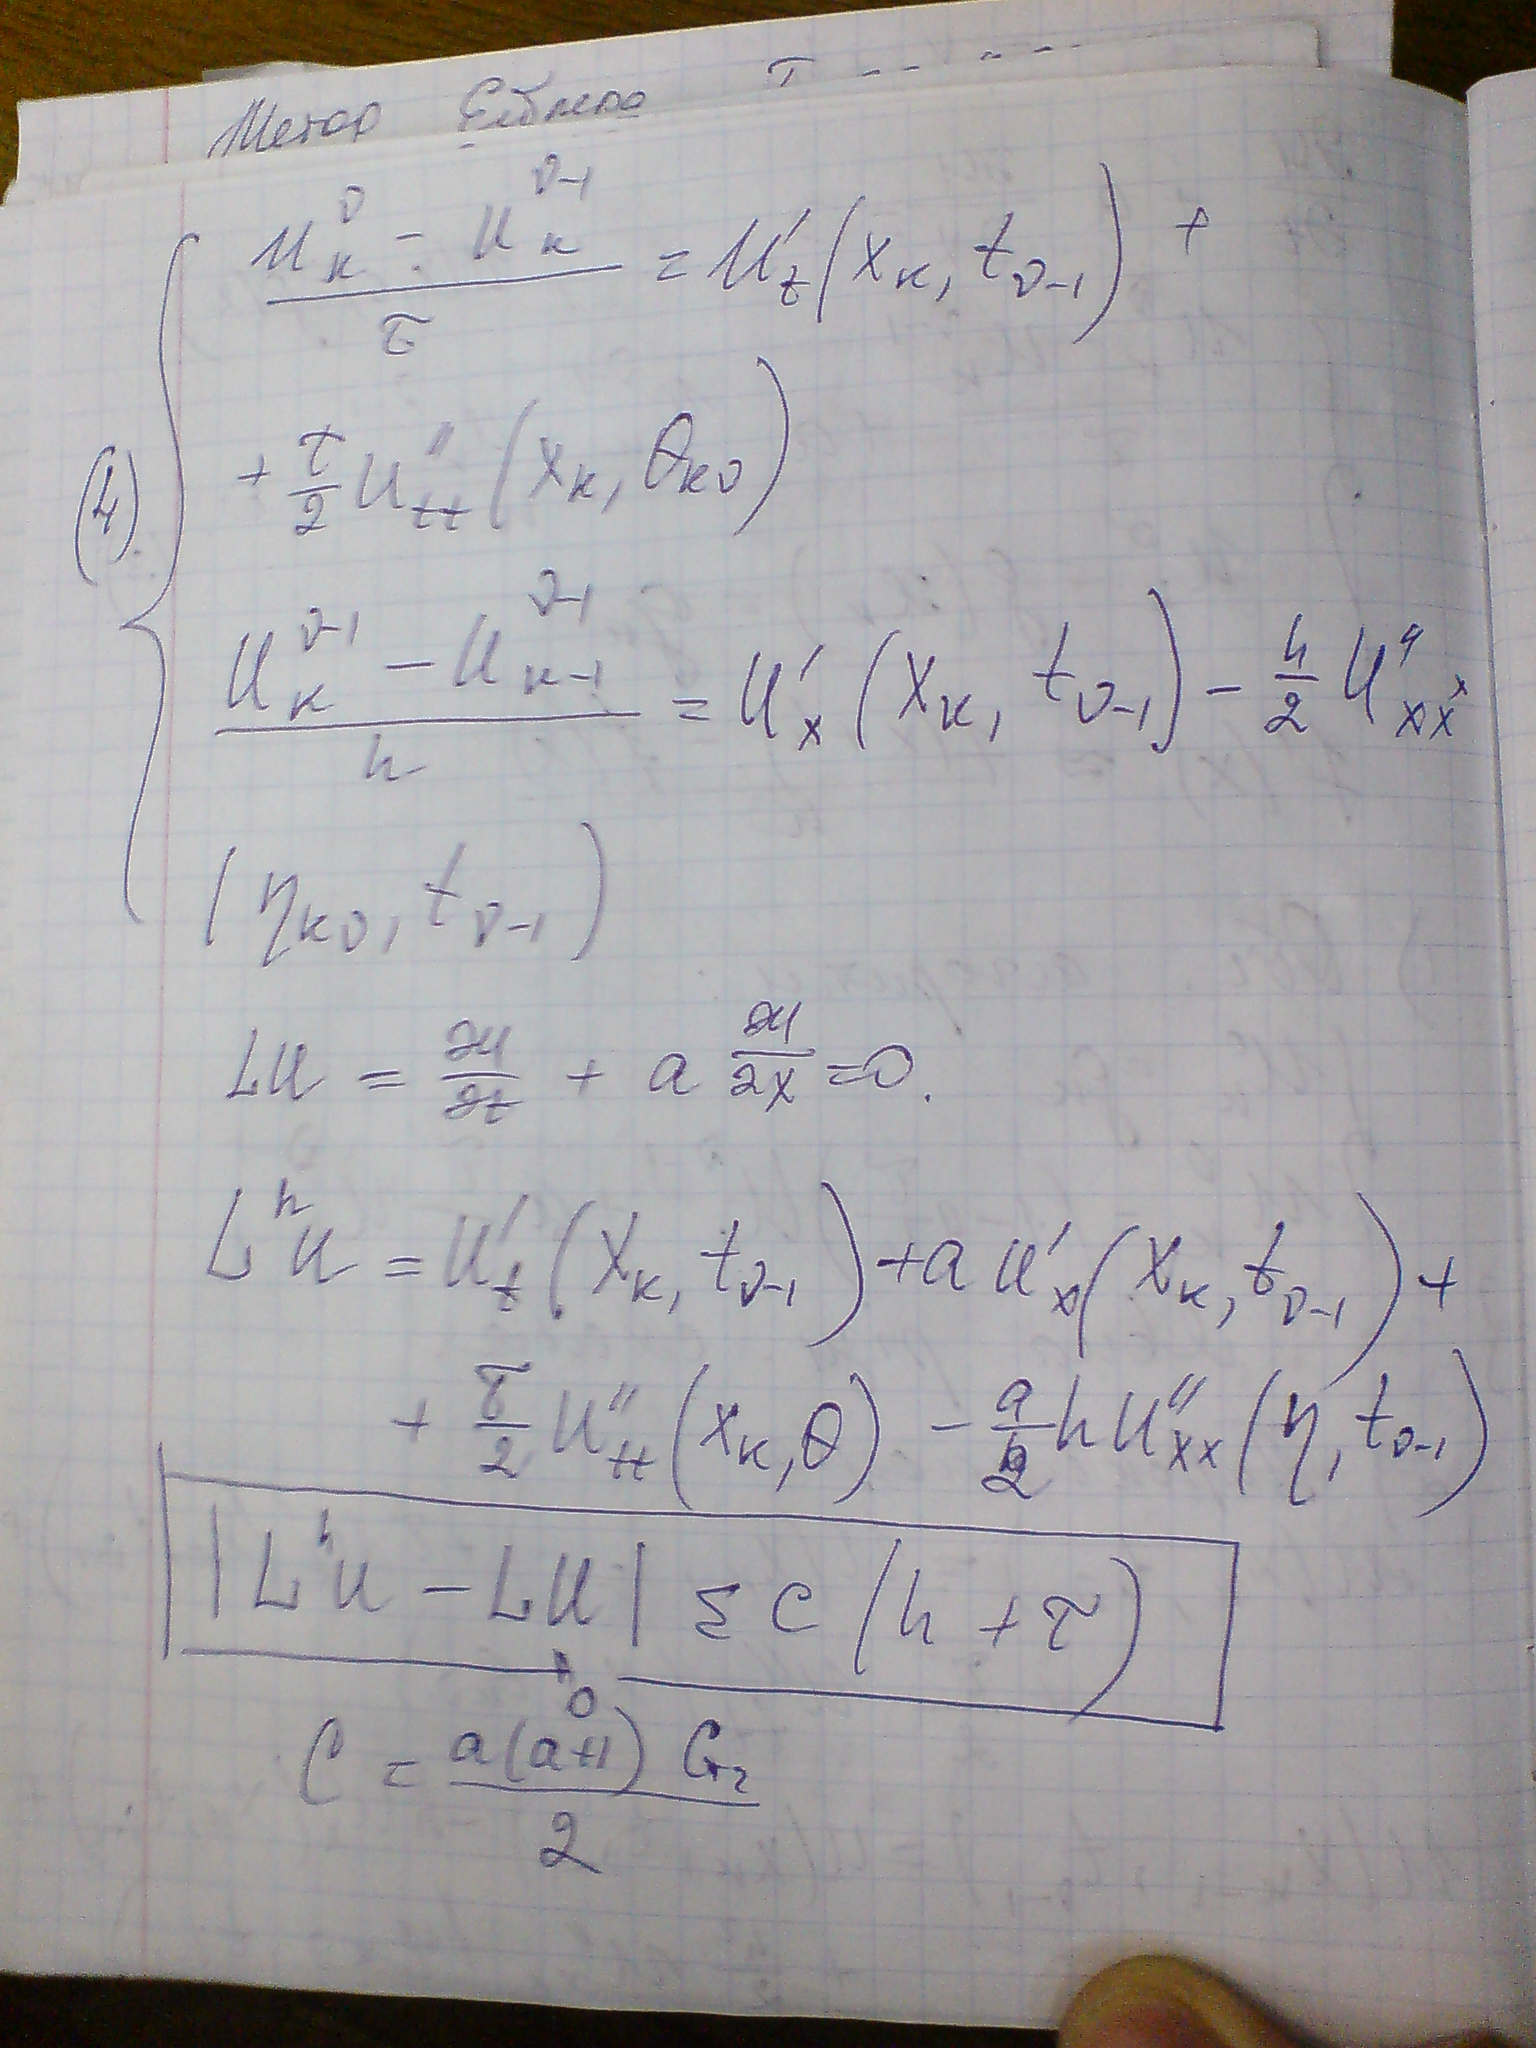 Метод
(4) { \frac{u_k^ν - u_k^{ν-1}}{τ} = u'_t(x_k, t_{ν-1}) +
+ \frac{τ}{2} u''_{tt}(x_k, θ_{kν})
\frac{u_k^{ν-1} - u_{k-1}^{ν-1}}{h} = u'_x(x_k, t_{ν-1}) - \frac{h}{2} u''_{xx}
(η_{kν}, t_{ν-1})
Lu = \frac{∂u}{∂t} + a \frac{∂u}{∂x} = 0.
L^h u = u'_t(x_k, t_{ν-1}) + a u'_x(x_k, t_{ν-1}) +
+ \frac{τ}{2} u''_{tt}(x_k, θ) - \frac{a}{2} h u''_{xx}(η, t_{ν-1})
|L^h u - Lu| ≤ C(h + τ)
0
C = \frac{a(a+1)}{2}